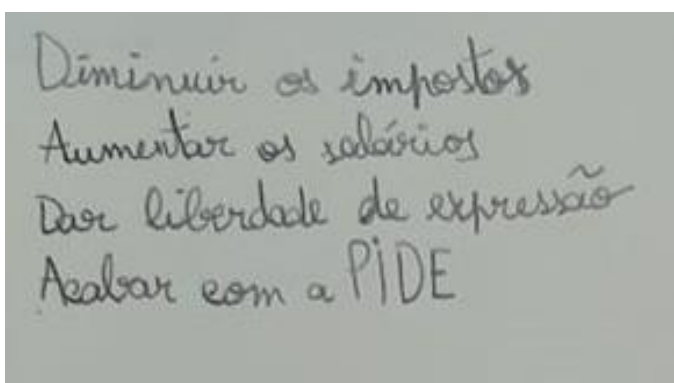 Diminuir os impostos
Aumentar os salários
Dar liberdade de expressão
Acabar com a PIDE